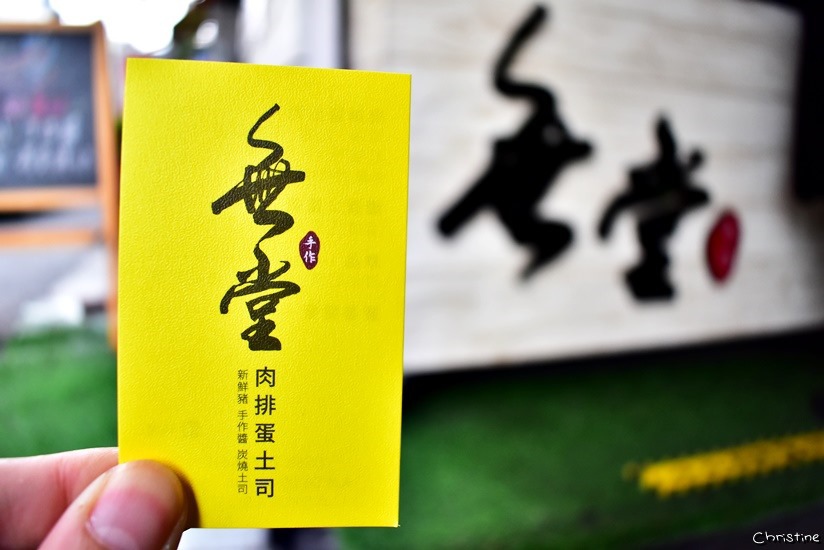 無堂
手作
肉排蛋土司
新鮮豬 手作醬 炭燒土司
無堂
Christine